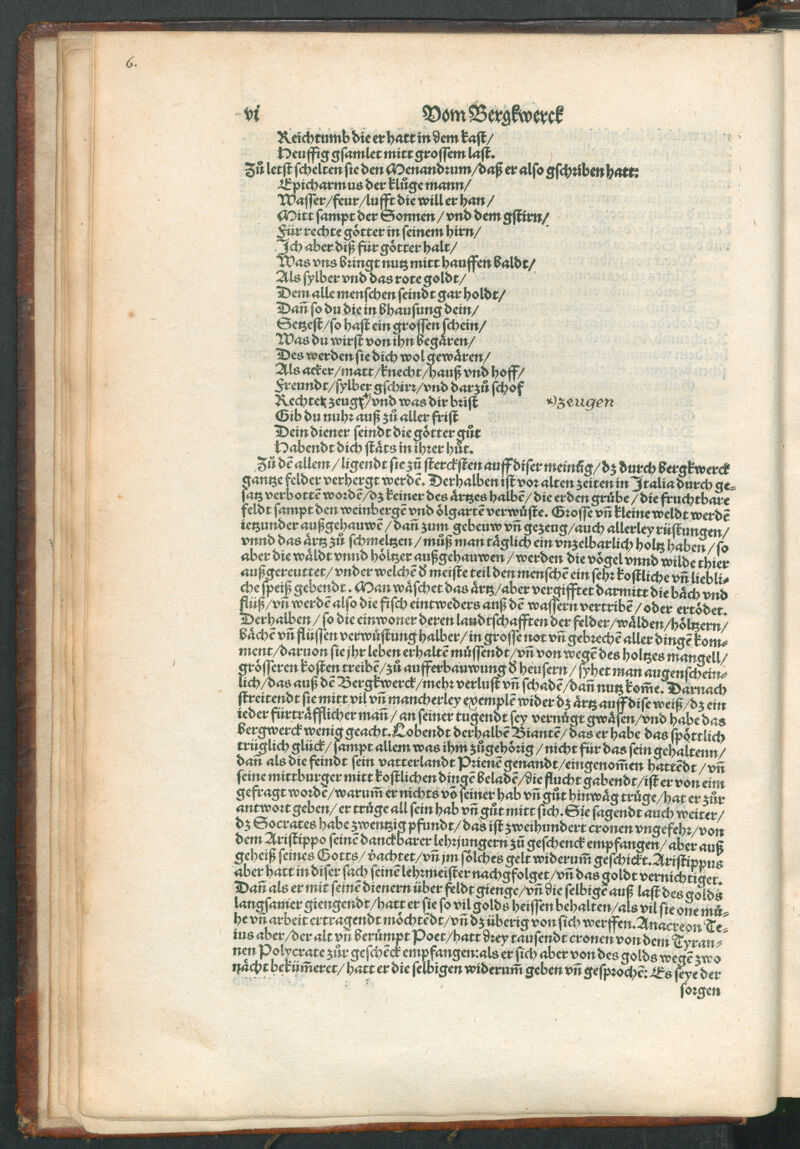 6.
vi Vom Bergkwerck
Reichtumb die er hatt in dem kast/
Heuffig gsamlet mitt grossem last.
Zů letst schelten sie den Menandrum/daß er also gschriben hatt:
Epicharmus der klůge mann/
Wasser/feur/lufft die will er han/
Mitt sampt der Sonnen/vnd dem gstirn/
Für rechte götter in seinem hirn/
Ich aber diß für götter halt/
Was vns bringt nutz mitt hauffen baldt/
Als sylber vnd das rote goldt/
Dem alle menschen seindt gar holdt/
Dañ so du die in bhausung dein/
Setzest/so hast ein grossen schein/
Was du wirst von ihn begären/
Des werden sie dich wol gewären/
Als acker/matt/knecht/hauß vnd hoff/
Freundt/sylber gschirr/vnd darzů schof
Rechter zeugt/vnd was dir brist zeugen
Gib du nuhr auß zů aller frist
Dein diener seindt die götter gůt
Habendt dich stäts in ihrer hůt.
Zů dẽ allem/ligendt sie zů stercksten auff diser meinũg/dz durch bergkwerck
gantze felder verhergt werdẽ. Derhalben ist vor alten zeiten in Italia durch ge⸗
satz verbottẽ wordẽ/dz keiner des ärtzes halbẽ/die erden grůbe/die fruchtbare
feldt sampt den weinbergẽ vnd ölgartẽ verwůste. Grosse vñ kleine weldt werdẽ
ietzunder außgehauwẽ/dañ zum gebeuw vñ gezeug/auch allerley rüstungen/
vnnd das ärtz zů schmeltzen/můß man täglich ein vnzelbarlich holtz haben/so
aber die wäldt vnnd höltzer außgehauwen/werden die vögel vnnd wilde thier
außgereuttet/vnder welchẽ ð meiste teil den menschẽ ein sehr kostliche vñ liebli⸗
che speiß gebendt. Man wäschet das ärtz/aber vergifftet darmitt die bäch vnd
flüß/vñ werdẽ also die fisch eintweders auß dẽ wassern vertribẽ/oder ertödet.
Derhalben/so die einwoner deren landtschafften der felder/wälden/höltzern/
bächẽ vñ flüssen verwüstung halber/in grosse not vñ gebrechẽ aller dingẽ kom⸗
ment/daruon sie jhr leben erhaltẽ müssendt/vñ von wegẽ des holtzes mangell/
grösseren kosten treibẽ/zů aufferbauwung ð heusern/syhet man augenschein⸗
lich/das auß dẽ Bergkwerck/mehr verlust vñ schadẽ/dañ nutz kom̃e. Darnach
streitendt sie mitt vil vñ mancherley exemplẽ wider dz ärtz auff dise weiß/dz ein
ieder fürträfflicher mañ/an seiner tugendt sey vernügt gwäsen/vnd habe das
bergwerck wenig geacht. Lobendt derhalbẽ Biantẽ/das er habe das spöttlich
trüglich glück/sampt allem was ihm zůgehörig/nicht für das sein gehaltenn/
dañ als die feindt sein vatterlandt Prienẽ genandt/eingenom̃en hattẽdt/vñ
seine mittburger mitt kostlichen dingẽ beladẽ/die flucht gabendt/ist er von eim
gefragt wordẽ/warum̃ er nichts võ seiner hab vñ gůt hinwäg trůge/hat er zůr
antwort geben/er trůge all sein hab vñ gůt mitt sich. Sie sagendt auch weiter/
dz Socrates habe zwentzig pfundt/das ist zweihundert cronen vngefehr/von
dem Aristippo seinẽ danckbarer lehrjungern zů geschenck empfangen/aber auß
geheiß seines Gotts/v̾achtet/vñ jm sölches gelt widerum̃ geschickt. Aristippus
aber hatt in diser sach seinẽ lehrmeister nachgfolget/vñ das goldt vernichtiget.
Dañ als er mit seinẽ dienern über feldt gienge/vñ die selbige auß last des golds
langsamer giengendt/hatt er sie so vil golds heissen behalten/als vil sie one mü⸗
he vñ arbeit ertragendt möchtẽdt/vñ dz überig von sich werffen. Anacreon Te⸗
ius aber/der alt vñ berümpt Poet/hatt drey tausendt cronen von dem Tyran⸗
nen Polycrate zůr geschẽck empfangen: als er sich aber von des golds wegẽ zwo
nächt bekům̃eret/hatt er die selbigen widerum̃ geben vñ gesprochẽ: Es seye der
sorgen